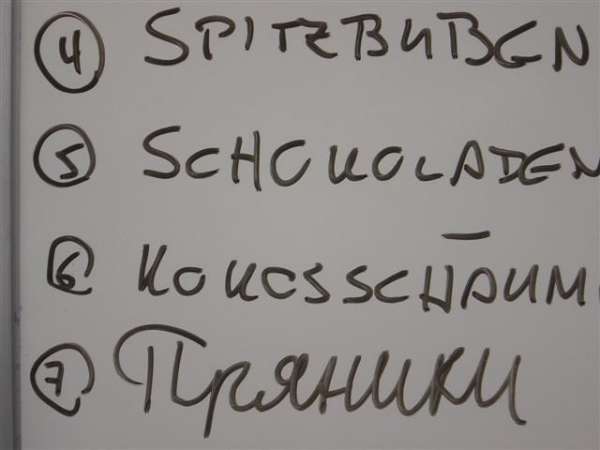 4 SPITZBUBEN
5 SCHOKOLADEN
6 KOKOSSCHAUM
7 Пряники